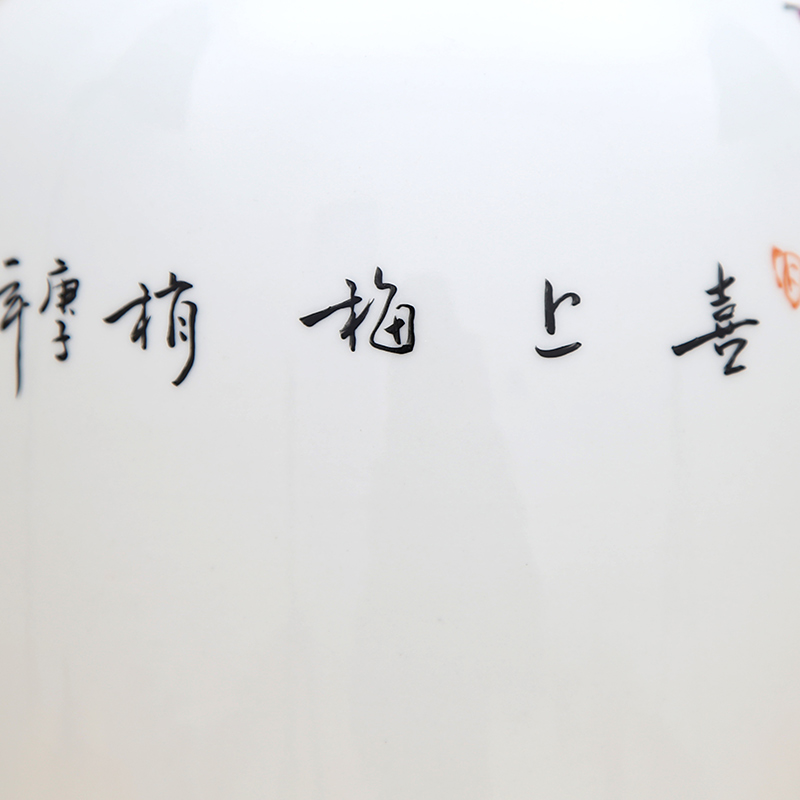 喜上梅梢
庚子
年